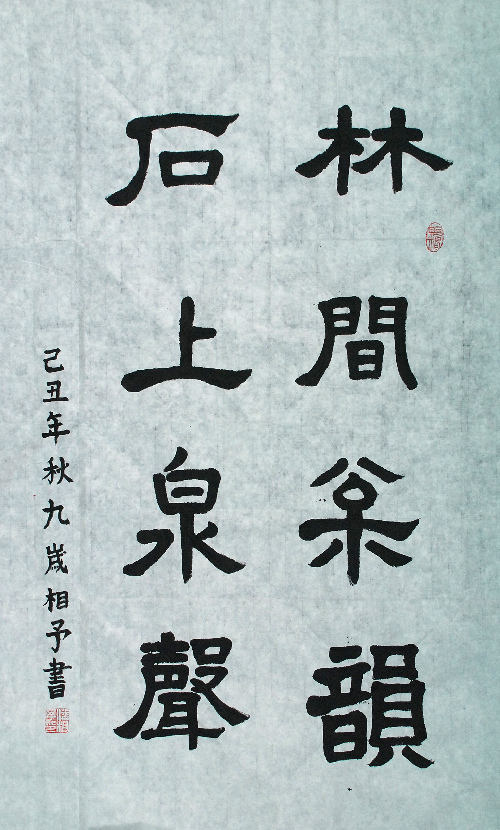 林間枀韻
石上泉聲
己丑年秋九歲相予書